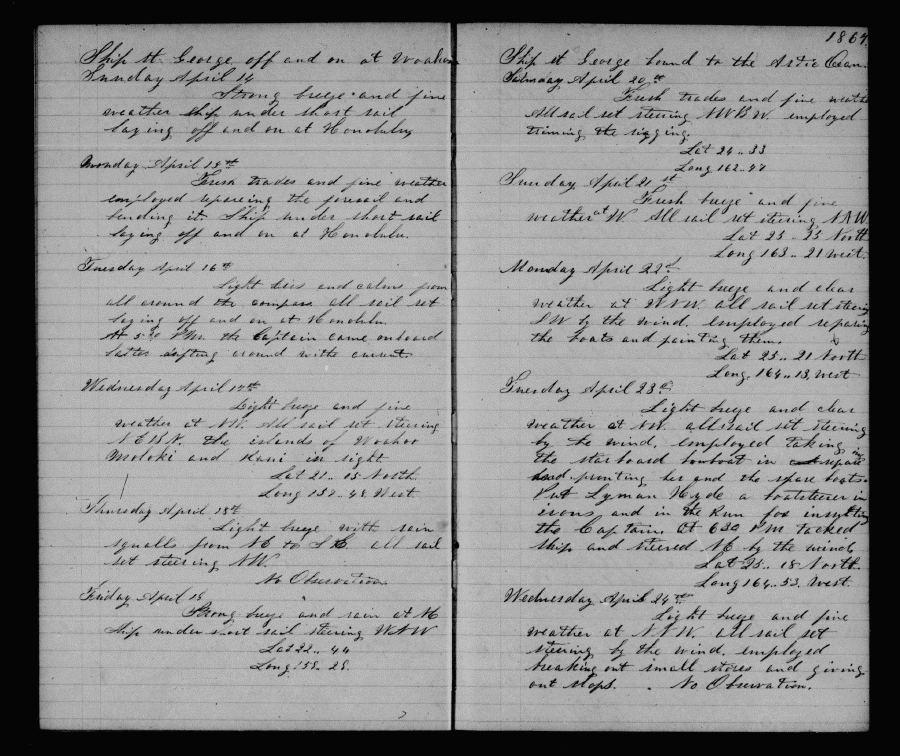 Ship St. George off and on at Woahoo
Sunday April 14
Strong breeze and fine
weather ship under short sail
laying off and on at Honolulu
Monday April 15th
Fresh trades and fine weather
employed repareing the foresail and
bending it. Ship under short sail
laying off and on at Honolulu.
Tuesday April 16th
Light airs and calms from
all around the compass all sail set
laying off and on at Honolulu
At 5.30 P.M. the Captain came onboard
latter drifting around with current
Wednesday April 17th
Light breeze and fine
weather at NW. All sail set steering
NEBN. the islands of Woahoo
Moloki and Rani in sight
Lat 21.. 15 North
Long 157.. 48 West
Thursday April 18th
Light breeze with rain
squalls from NE to SE. all sail
set steering NW.
No Observation
Friday April 19
Strong breeze and rain at NE
ship under short sail steering WNW
Lat 22.. 44
Long 158.. 28.
1867.
Ship St George bound to the Artic Ocean.
Saturday April 20th
Fresh trades and fine weather
All sail set steering NWBW. employed
triming the rigging.
Lat 24.. 33
Long 162.. 47
Sunday April 21st
Fresh breeze and fine
weather at W All sail set steering NNW.
Lat 25.. 25 North
Long 163.. 21 west.
Monday April 22d
Light breeze and clear
weather at WNW. all sail set steering
SW by the wind. employed reparing
the boats and painting them.
Lat 25.. 21 North
Long. 164.. 13, West
Tuesday April 23d
Light breeze and clear
weather at NW. all sail set steering
by the wind. employed taking
the starboard bowboat in and repareing
head printing her and the spare boats
Put Lyman Hyde a boatsteerer in
irons and in the Run for insulting
the Captain. At 6.30 P.M tacked
ship and steered NE by the wind.
Lat 25.. 18 North.
Long 164.. 53. West.
Wednesday April 24th
Light breeze and fine
weather at NNW. all sail set
steering by the wind. employed
breaking out small stores and giving
out slops. . No Observation.